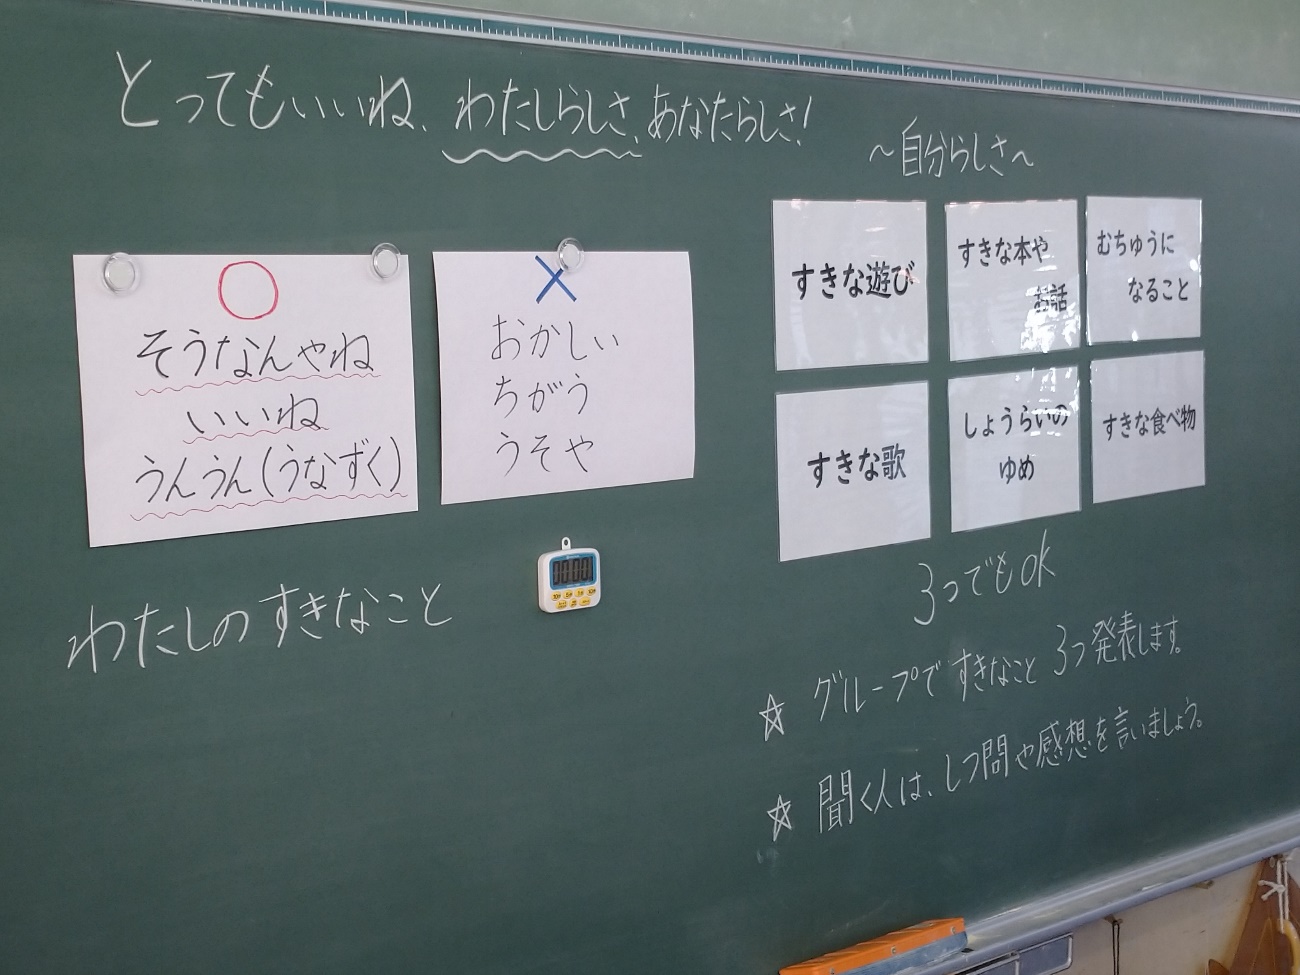 とってもいいね、わたしらしさ、あなたらしさ!
~自分らしさ~
○
そうなんやね
いいね
うんうん(うなずく)
×
おかしい
ちがう
うそや
すきな遊び
すきな本や
お話
むちゅうに
なること
すきな歌
しょうらいの
ゆめ
すきな食べ物
わたしのすきなこと
00:00
3つでもOK
☆ グループですきなこと3つ発表します。
☆ 聞く人は、しつ問や感想を言いましょう。